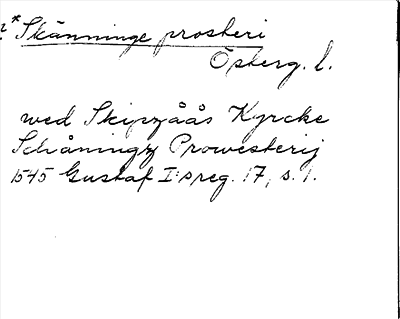 *Skänninge prosteri
Österg. l.
wed Skipzåås Kyrcke
Schåningz Prowesterij
1545 Gustaf I:s reg. 17, s. 1.